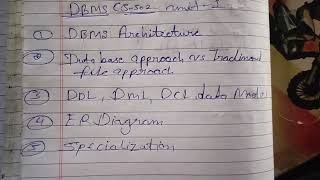 DBMS CS-502 unit-I
① DBMS Architecture
② Data base approach vs Traditional
file approach
③ DDL, DML, DCL, data Models
④ E R Diagram
⑤ Specialization